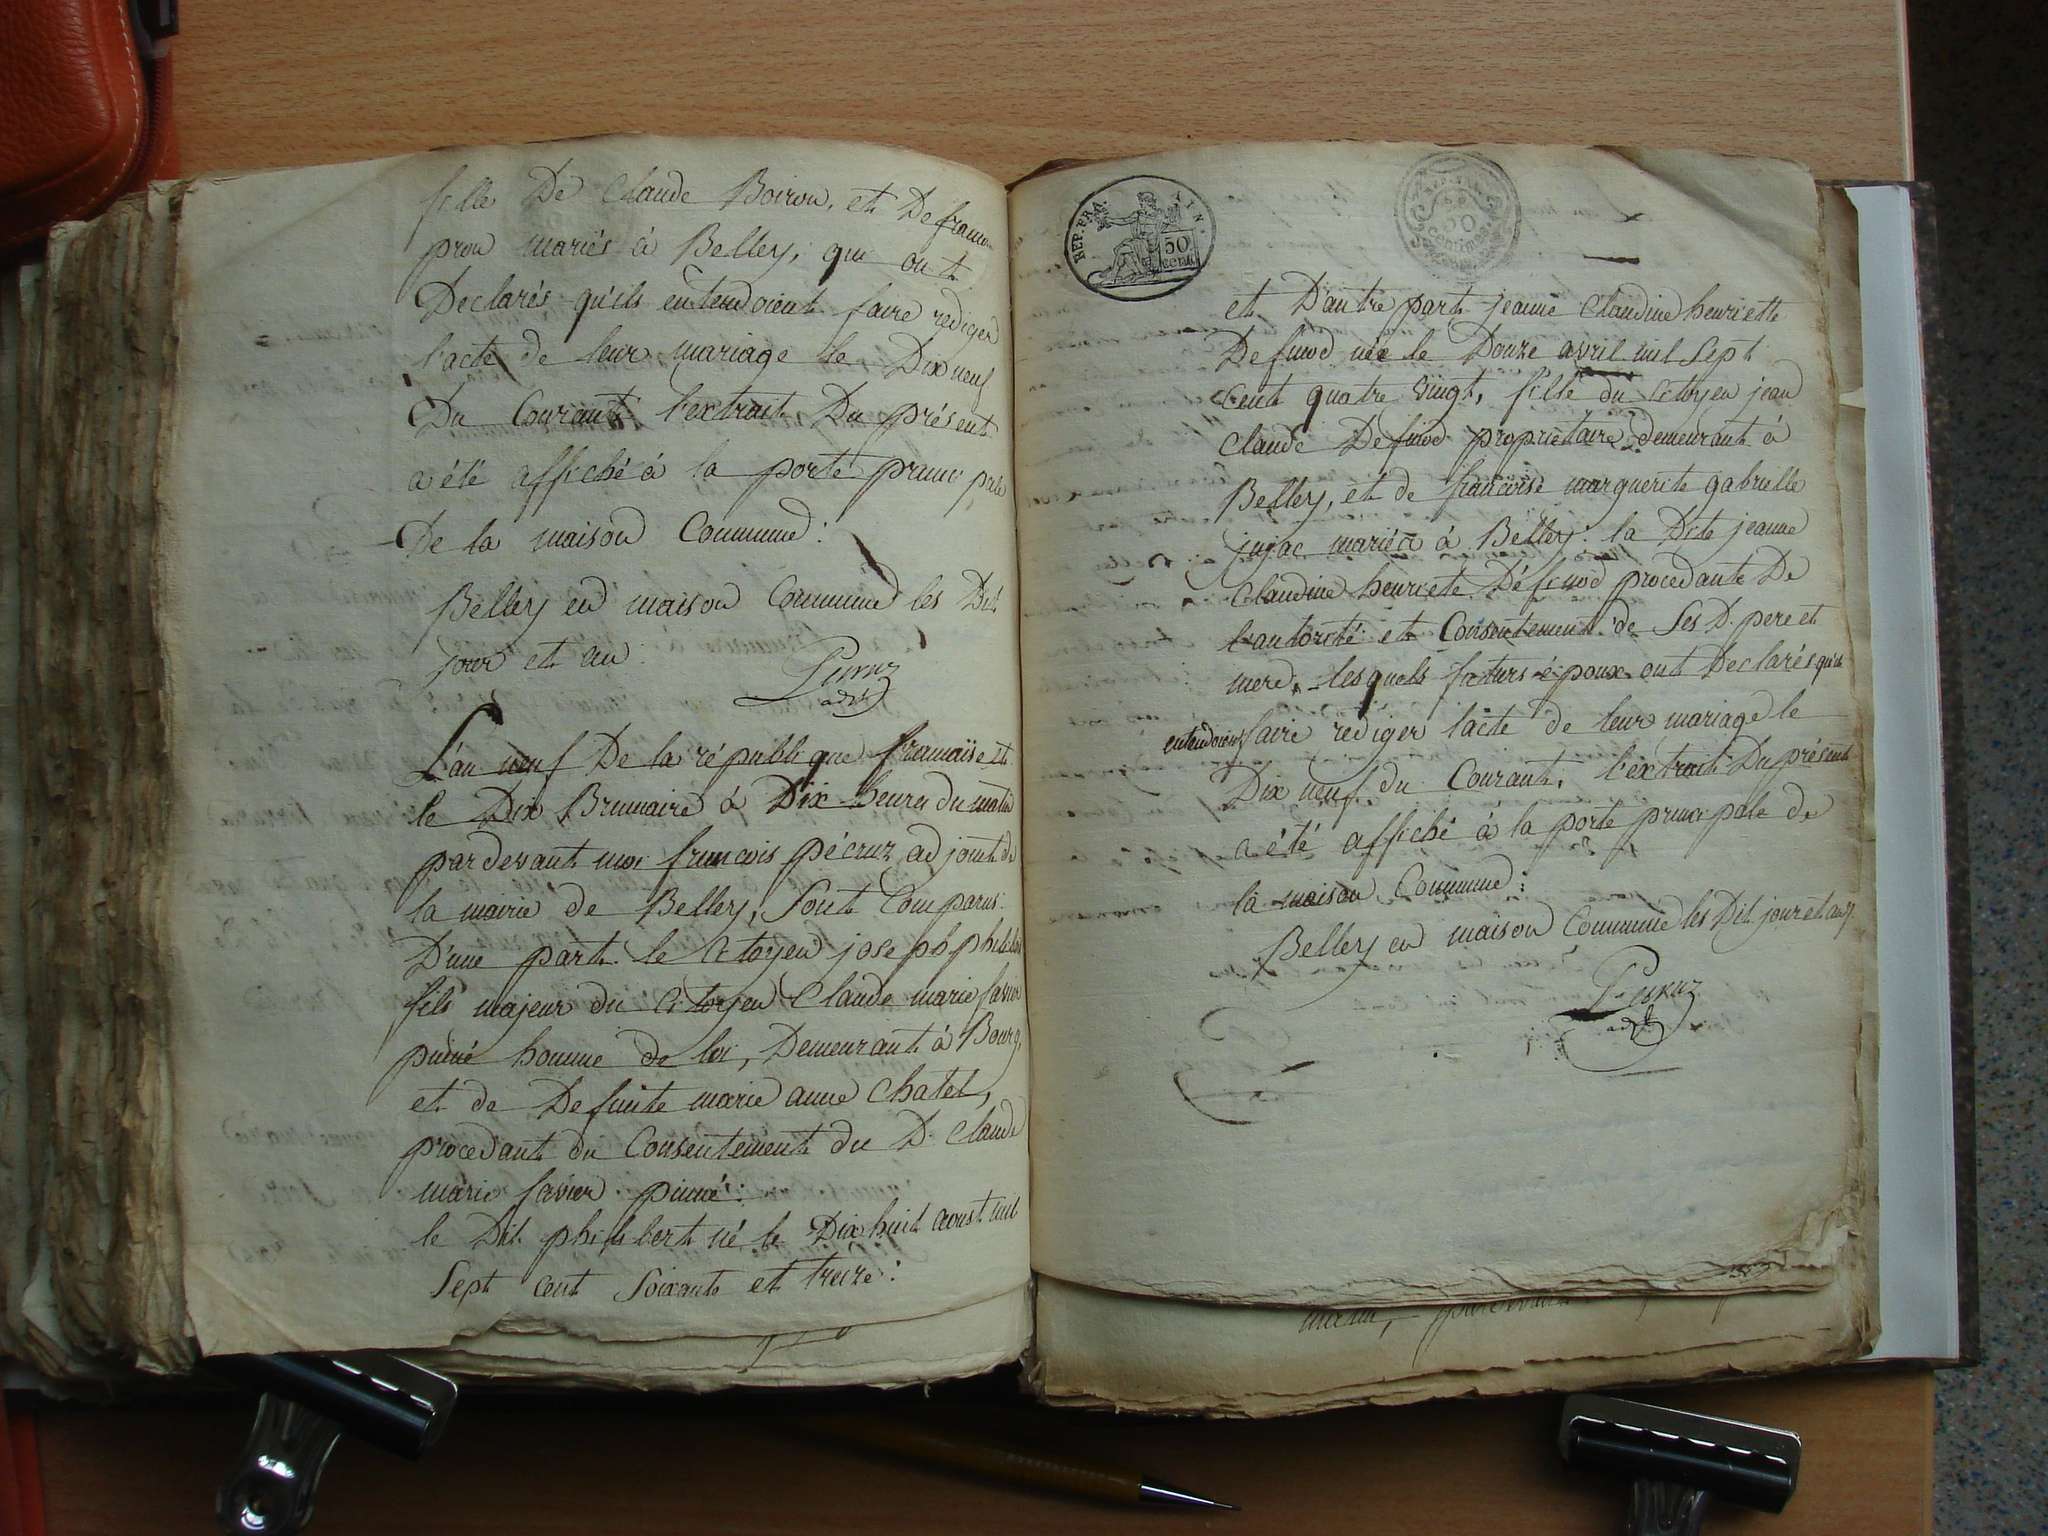 fille De Claude Boiron, et De
prou mariés à Belley, qui ont
Declarés qu'ils entendoient faire rediger
l'acte de leur mariage le Dix neuf
Du Courant l'extrait Du présent
a été affiché à la porte principale
De la maison Commune:
Belley en maison Commune les Dit
jour et an
adjt
L'an neuf De la république françaïse et
le Dix Brumaire à Dix heures du matin
par devant moi françois pécruz adjoint de
la mairie de Belley, sont Comparus.
D'une part le Citoyen joseph philibert
fils majeur du Citoyen Claude marie favier
puiné homme de loi, Demeurant à Bourg,
et de Defunte marie anne Chatel,
procedant du Consentement du D. Claude
marie favier puiné:
le Dit philibert né le Dix huit aoust mil
Sept cent Soixante et treize:
REP. FRA.
50
cent.
50
Centimes
et D'autre part jeanne Claudine henriette
Definod née le Douze avril mil Sept
Cent quatre vingt, fille du Citoyen jean
Claude Definod propriétaire demeurant à
Belley, et de françoise marguerite gabrielle
jujac mariés à Belley: la Dite jeanne
Claudine henriete Définod procedante De
l'autorité et Consentement de Ses D. pere et
mere, lesquels futurs époux ont Declarés qu'ils
entendoient faire rediger l'acte de leur mariage le
Dix neuf du Courant, l'extrait Du présent
a été affiché à la porte principale de
la maison Commune:
Belley en maison Commune les Dit jour et an.
Pecruz
adjt